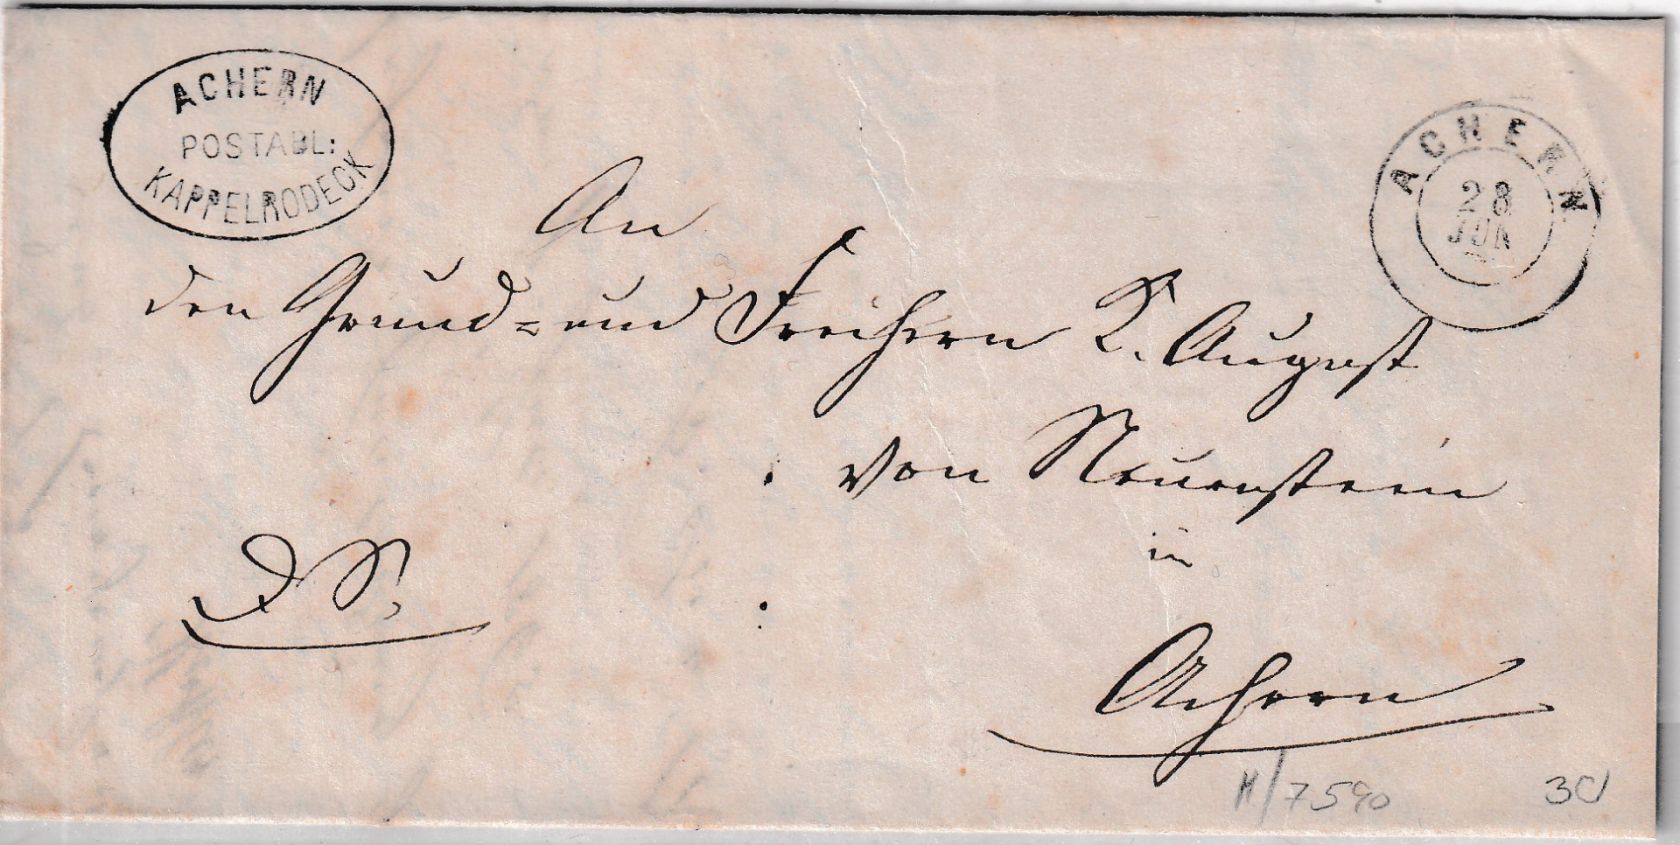 ACHERN
POSTABL:
KAPPELRODECK
ACHERN
28
JUN
An
den Grund= und Freiherrn K. August
von Neuenstein
in
Achern
D.S.
30